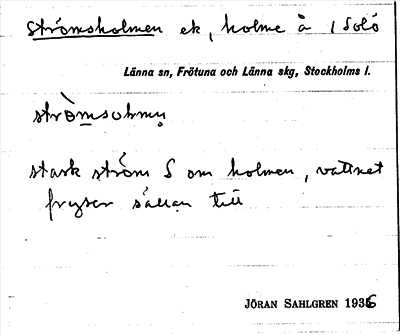 Strömsholmen ek, holme å 1 Solö
Länna sn, Frötuna och Länna skg, Stockholms l.
strömsohmn
stark ström S om holmen, vattnet
fryser sällan till
JÖRAN SAHLGREN 1936